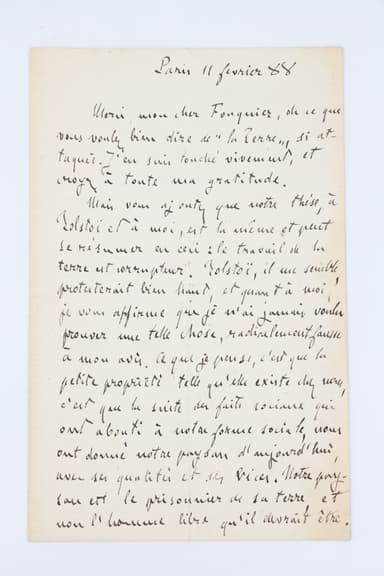 Paris 11 février 88
Merci, mon cher Fouquier, de ce que
vous voulez bien dire de " la Terre ", si at-
taquée. J'en suis touché vivement, et
croyez à toute ma gratitude.
Mais vous ajoutez que notre thèse, à
Tolstoï et à moi, est la même et peut
se résumer en ceci : le travail de la
terre est corrupteur. Tolstoï, il me semble,
protesterait bien haut, et quant à moi,
je vous affirme que je n'ai jamais voulu
prouver une telle chose, radicalement fausse
à mon avis. Ce que je pense, c'est que la
petite propriété telle qu'elle existe chez nous,
c'est que la suite des faits sociaux qui
ont abouti à notre forme sociale, nous
ont donné notre paysan d'aujourd'hui,
avec ses qualités et ses vices. Notre pay-
san est le prisonnier de sa terre et
non l'homme libre qu'il devrait être.